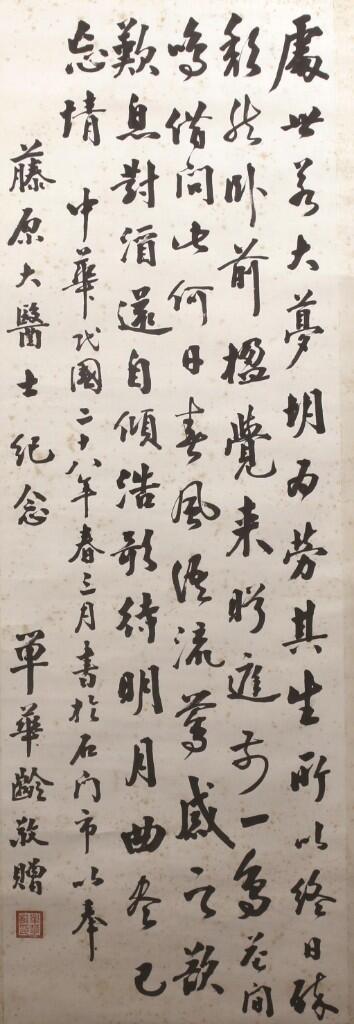 處世若大夢胡為勞其生所以終日醉
頹然臥前楹覺来眄庭前一鳥花間
鳴借問此何日春風語流鶯感之欲
歎息對酒還自傾浩歌待明月曲尽已
忘情 中華民國二十八年春三月書於石门市以奉
藤原大醫士紀念 單華齡敬贈